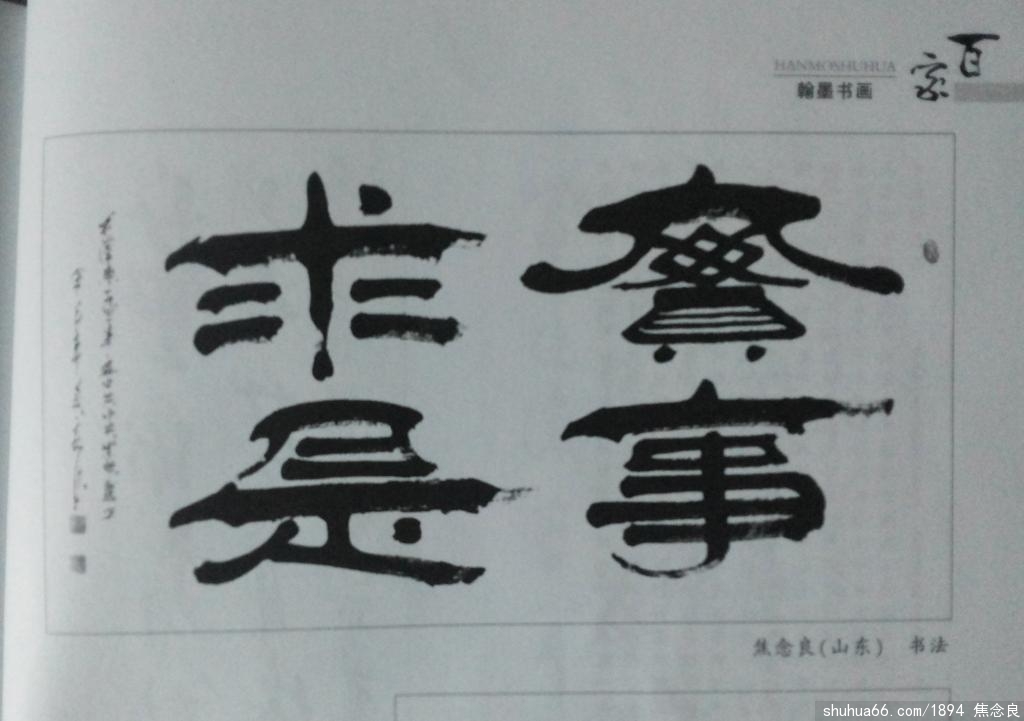 百家
HANMOSHUHUA
翰墨书画
實事
求是
焦念良(山东) 书法
shuhua66.com/1894 焦念良